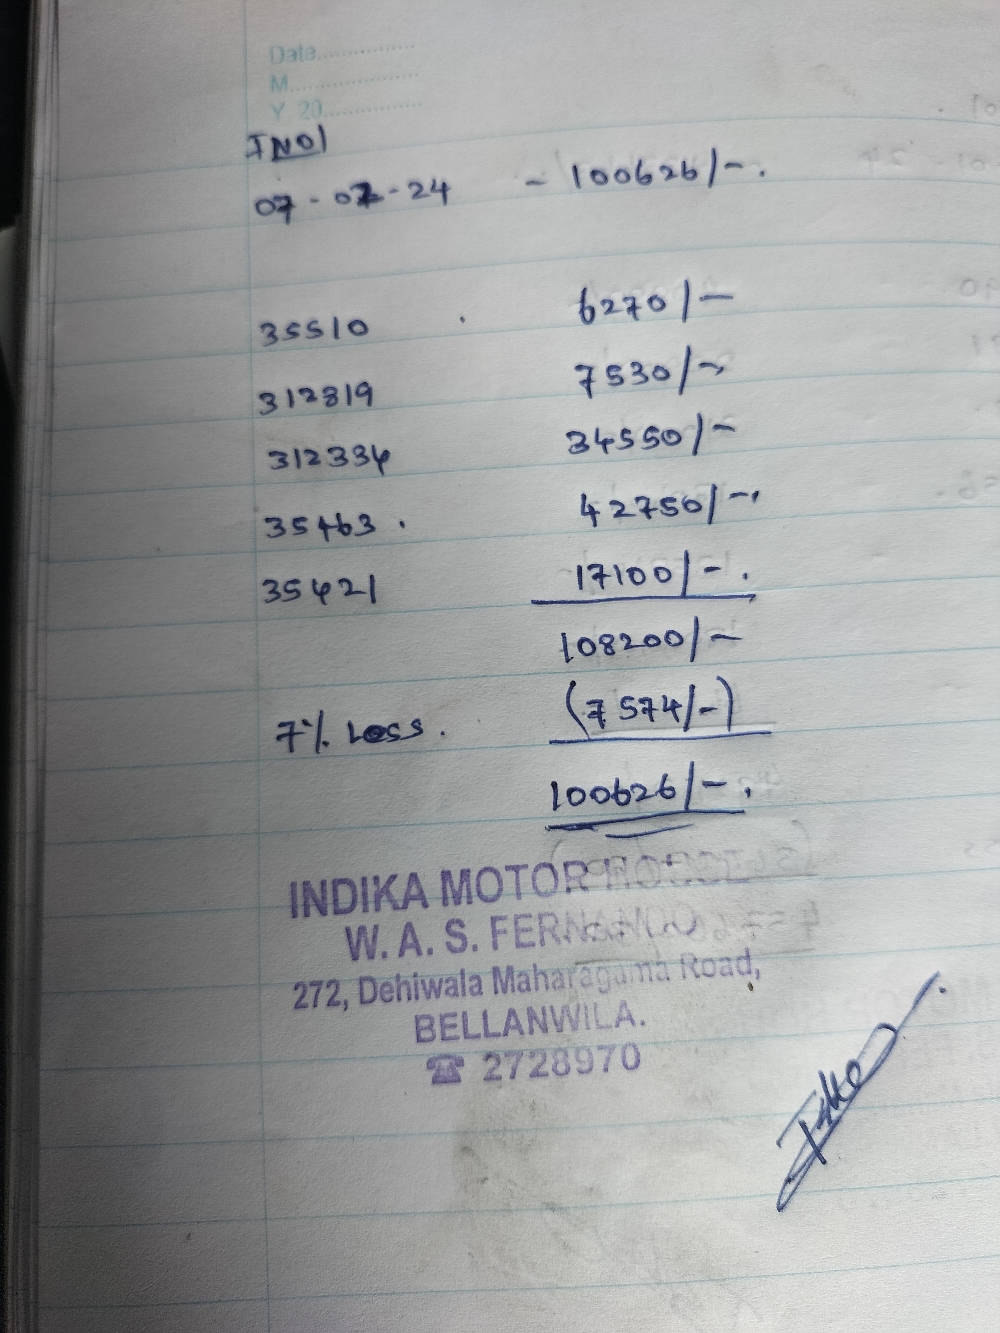 Date...............
M....................
Y 20...............
IN01
07-07-24 - 100626/-.
35510 6270/-
312819 7530/-
312334 34550/-
35463. 42750/-.
35421 17100/-.
108200/-
7% Less. (7574/-)
100626/-.
INDIKA MOTOR HOUSE
W. A. S. FERNANDO
272, Dehiwala Maharagama Road,
BELLANWILA.
☎ 2728970